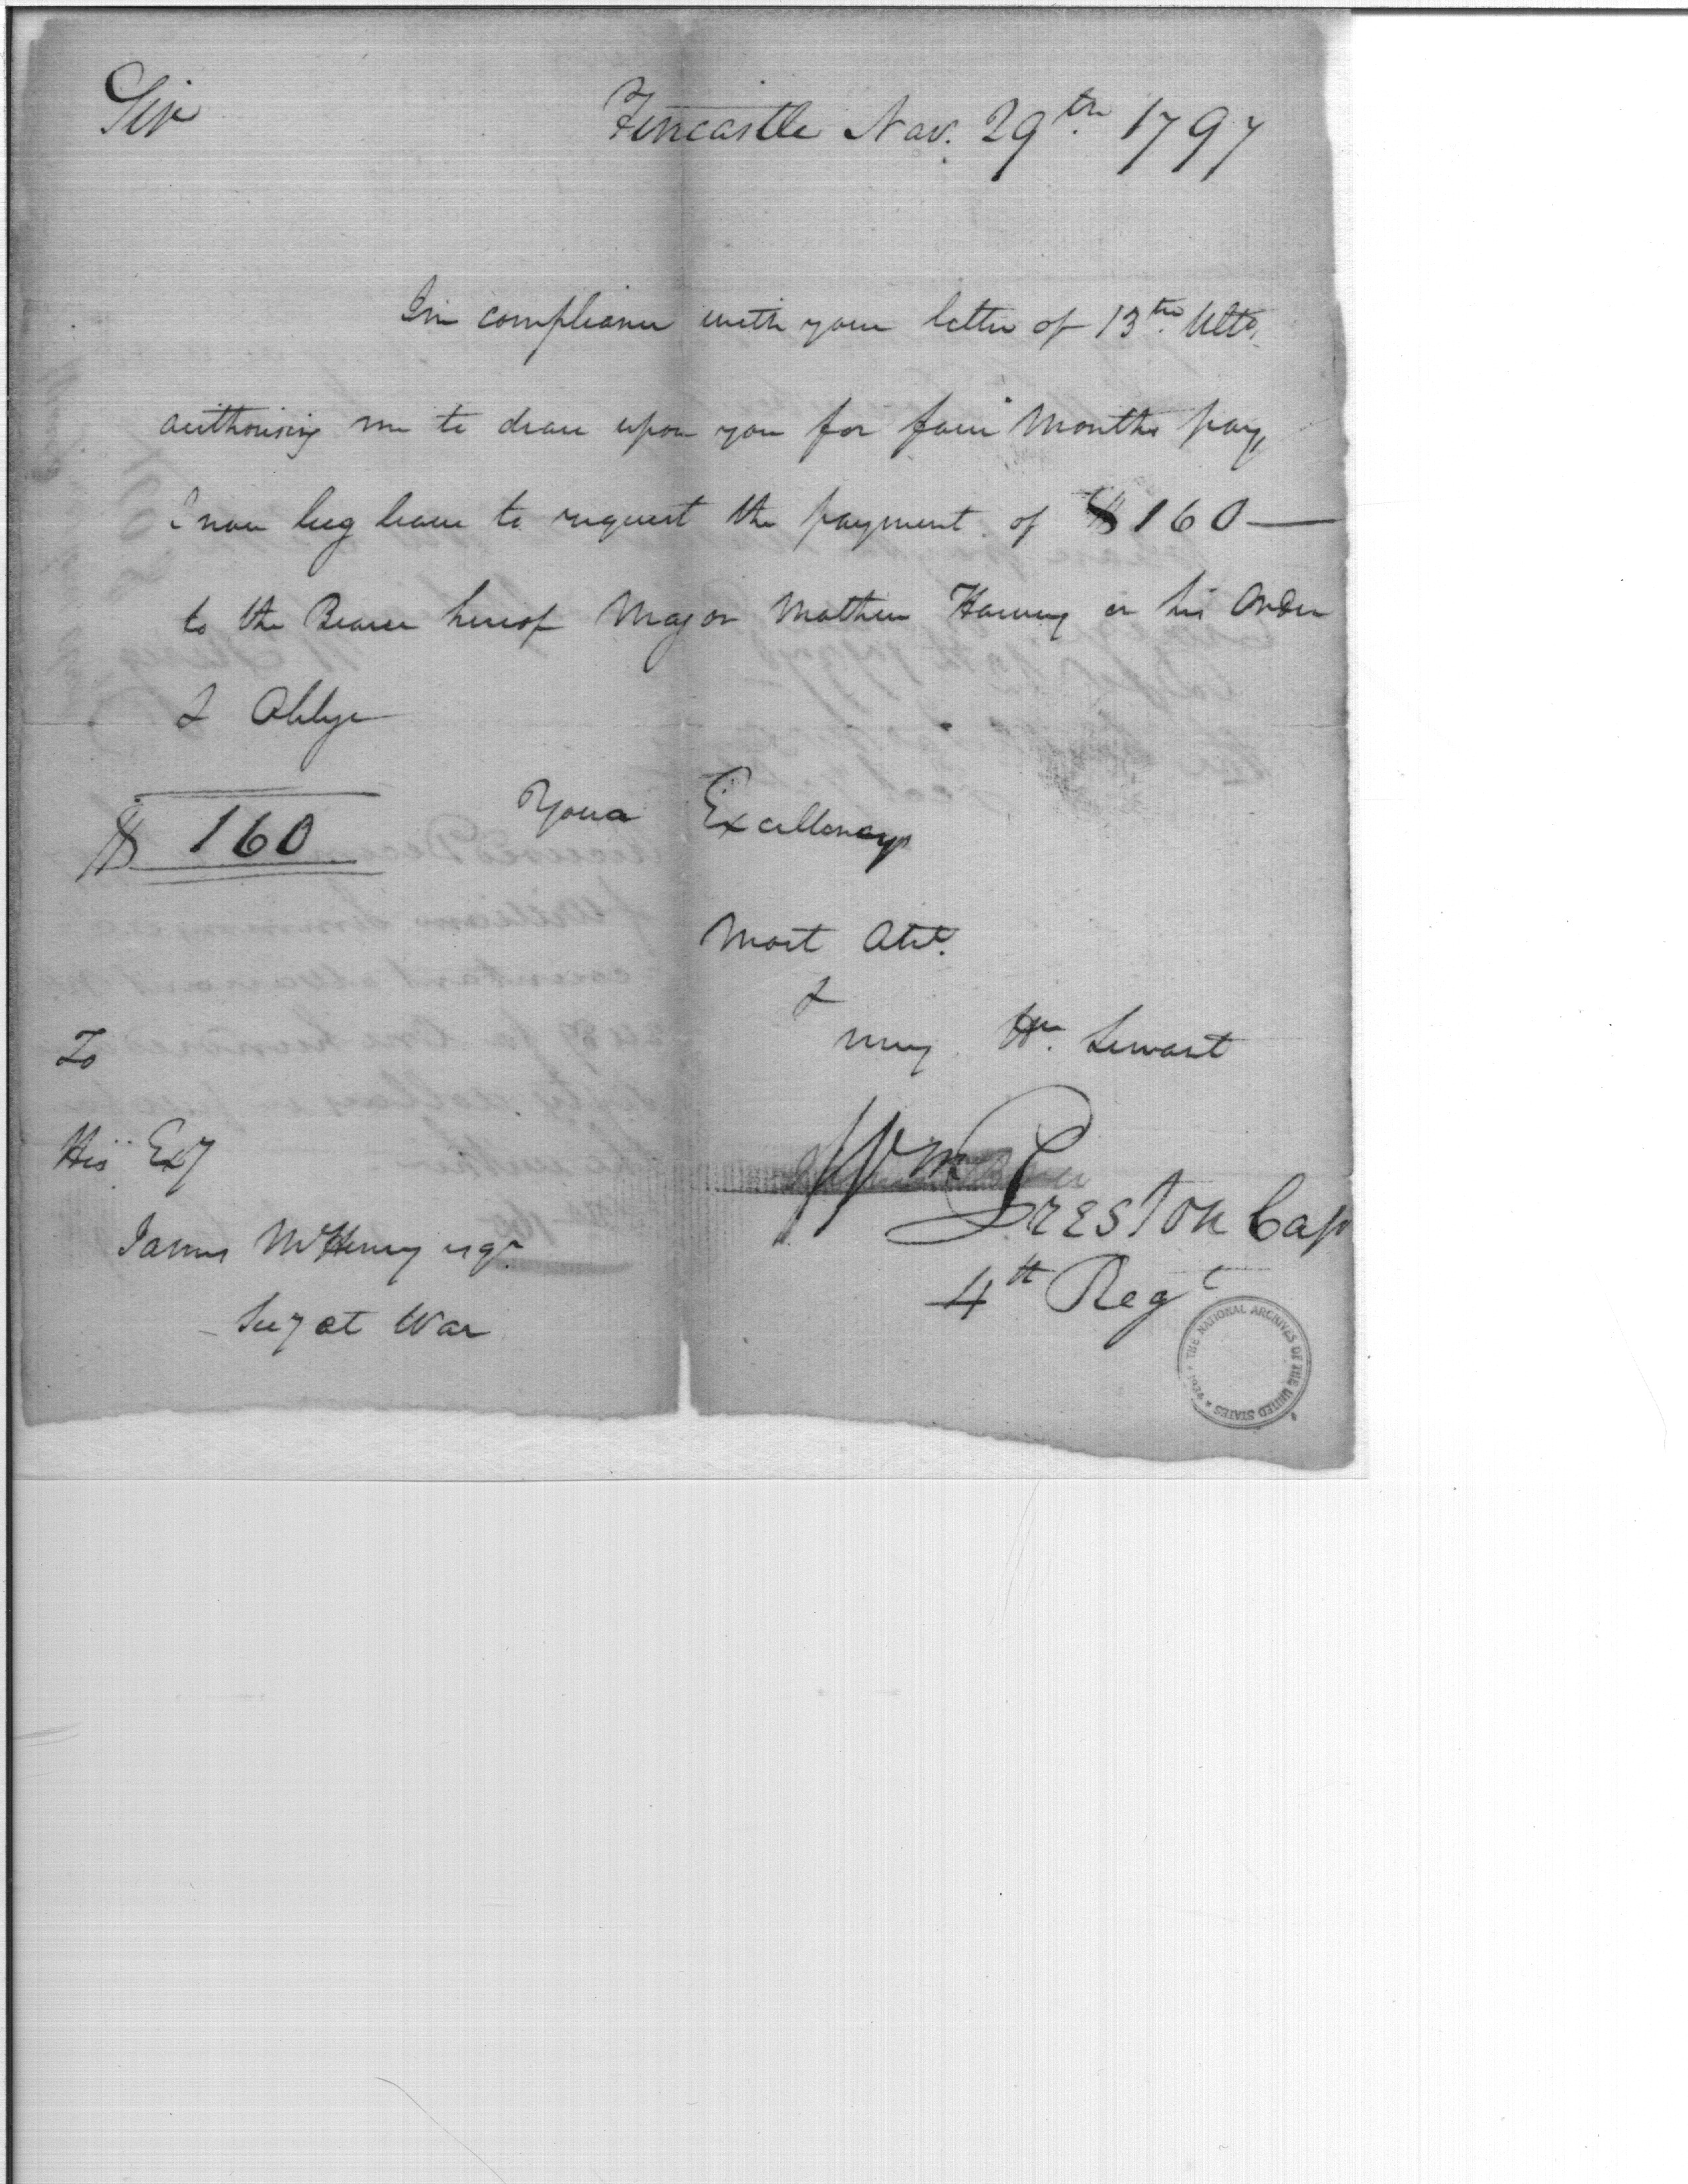 Sir
Fincastle Nov. 29th 1797
In compliance with your letter of 13th Ulto.
authorising me to draw upon you for four Months pay,
I now beg leave to request the payment of $160—
to the Bearer hereof Major Mathew Harvey or his Order
& Oblige
$ 160
Your Excellencys
Most Obt.
&
very Hu. Servant
Wm Preston Cap
4th Regt
To
His Exy
James McHenry esqr
Secy at War
THE NATIONAL ARCHIVES OF THE UNITED STATES * 1934 *